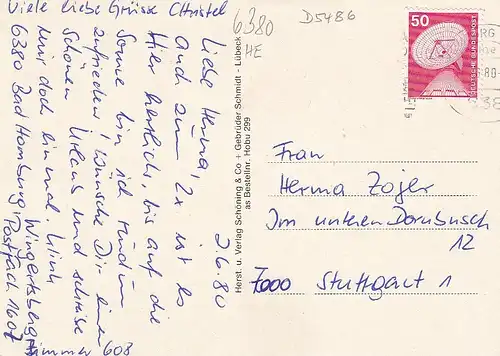 Viele liebe Grüsse Christel
6380
HE
D5486
26.80
Liebe Herma,
Auch zum 2x ist es
Hier herrlich, bis auf die
Sonne bin ich rundum
zufrieden! Wünsche Dir einen
schönen Urlaub und schreibe
Mir doch einmal. Klinik
Wingertsberg
6380 Bad Homburg Postfach 1607
Zimmer 608
Herst. u. Verlag Schöning & Co + Gebrüder Schmidt - Lübeck
as Bestellnr. Hobu 299
50
DEUTSCHE BUNDESPOST
Frau
Herma Zojer
Im unteren Dornbusch
12
7000 Stuttgart 1